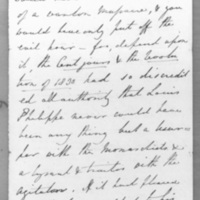 of a random measure, & you
would have only put off the
evil hour – for, depend upon
it, the Cent jours & the Revolu
tion of 1830 had so discredit
ed all authority that Louis
Philippe never could have
been any thing but a
with the Monarchists &
a tyrant & traitor with the
agitators. If it had pleased